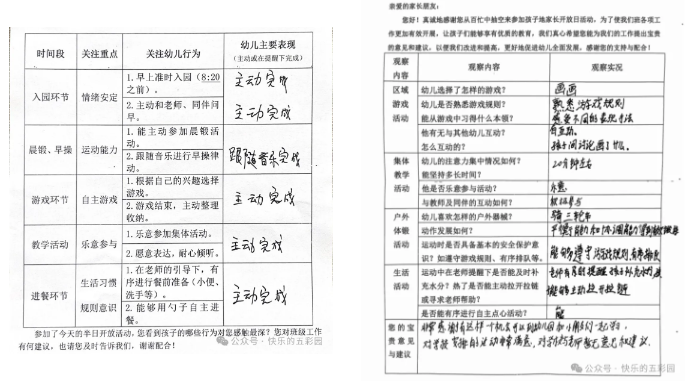 时间段 关注重点 关注幼儿行为 幼儿主要表现
(主动或在提醒下完成)
入园环节 情绪安定
1.早上准时入园（8:20
之前）。
主动完成
2.主动和老师、同伴问
早。
主动完成
晨锻、早操 运动能力
1.能主动参加晨锻活
动。
主动完成
2.跟随音乐进行早操律
动。
跟随音乐完成
游戏环节 自主游戏
1.根据自己的兴趣选择
游戏。
2.游戏结束，主动整理
收纳。
主动完成
教学活动 乐意参与
1.乐意参加集体活动。
2.愿意表达，耐心倾听。
主动完成
进餐环节 生活习惯
规则意识
1.在老师的引导下，有
序进行餐前准备（小便、
洗手等）。
2.能够用勺子自主进
餐。
主动完成
参加了今天的半日开放活动，您看到孩子的哪些行为对您感触最深？您对班级工作
有何建议，也请您及时告诉我们，谢谢配合！
公众号·快乐的五彩园
亲爱的家长朋友：
您好！真诚地感谢您从百忙中抽空来参加孩子地家长开放日活动，为了使我们班各项工
作更加有效开展，让孩子们能够享有优质的教育，我们真心希望您能为我们的工作提出宝贵
的意见和建议，以便我们改进和提高，更好地促进幼儿全面发展，感谢您的支持与配合！
观察
内容 观察内容 观察实况
区域
游戏
活动
幼儿选择了怎样的游戏？ 画画
幼儿是否熟悉游戏规则？ 熟悉游戏规则
能从游戏中习得什么本领？
他有无与其他幼儿互动？ 有互动。
怎么互动的？
集体
教学
活动
幼儿的注意力集中情况如何？
能坚持多长时间？ 20分钟左右
他是否乐意参与活动？ 乐意
与教师及同伴的互动如何？
户外
体锻
活动
幼儿喜欢怎样的户外器械？ 骑三轮车
动作发展如何？
运动时是否具备基本的安全保护意
识？如遵守游戏规则、有序排队等。
生活
活动
运动中在老师提醒下是否能及时补
充水分？热了是否能主动拉开拉链
或寻求老师帮助？
是否能有序进行自主点心活动？ 能
您的宝
贵意见
与建议
公众号·快乐的五彩园